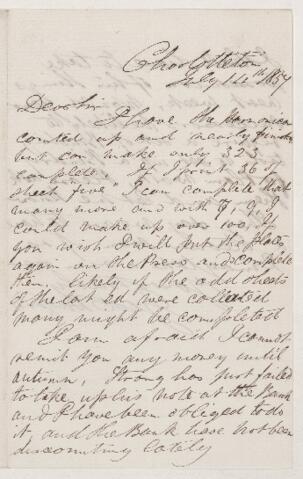 Charlottetown
July 14th 1857
Dear Sir
I have the Harmonica
counted up and nearly finished
but can make only 323
complete. If I print 36 of
sheet "five" I can complete that
many more and with 7, 9,
could make up over 100, If
you wish I will put the plates
again on the Press and complete
them likely if the odd sheets
of the last ed were collated
many might be completed
I am afraid I cannot
remit you any money until
autumn, Strong has just failed
to take up his note at the Bank
and I have been obliged to do
it, and the Bank have not been
discounting lately